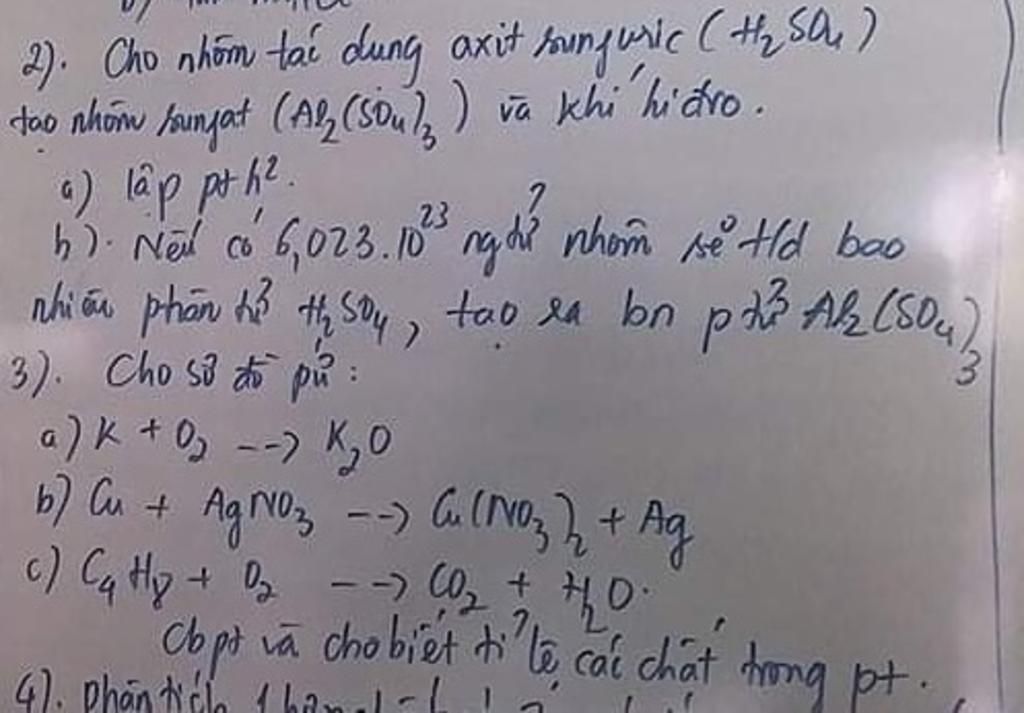 2). Cho nhôm tác dung axit sunguric (H₂SO₄)
tạo nhôm sungat (Al₂(SO₄)₃) và khí hiđro.
a) lập pthh².
b). Nếu có 6,023.10²³ ngtử nhôm sẻ t/d bao
nhiêu phân tử H₂SO₄, tạo ra bn ptử Al₂(SO₄)₃
3). Cho sơ đồ pứ :
a) K + O₂ --> K₂O
b) Cu + AgNO₃ --> Cu(NO₃)₂ + Ag
c) C₄H₈ + O₂ --> CO₂ + H₂O.
Cb pt và cho biết tỉ lệ các chất trong pt.
4). Phân tích